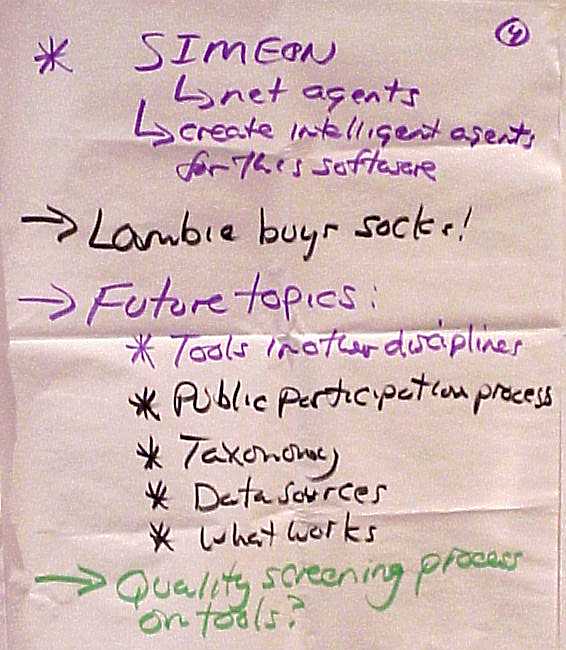 4
* SIMEON
↳ net agents
↳ create intelligent agents
for this software
→ Lambie buys socks!
→ Future topics:
* Tools in other disciplines
* Public participation process
* Taxonomy
* Data sources
* What works
→ Quality screening process
on tools?